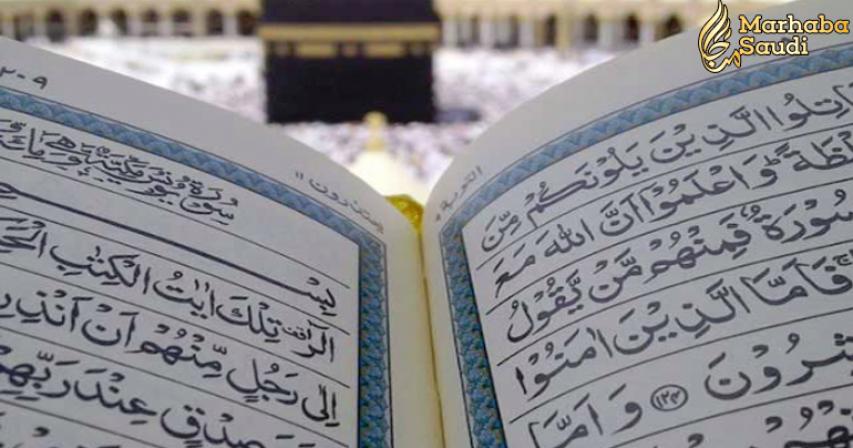 Marhaba
Saudi
التوبة ٩
قَاتِلُوا الَّذِيْنَ يَلُوْنَكُمْ مِّنَ
وَاعْلَمُوْۤا اَنَّ اللّٰهَ مَعَ
سُوْرَةٌ فَمِنْهُمْ مَّنْ يَّقُوْلُ
فَاَمَّا الَّذِيْنَ اٰمَنُوْا
شِرُوْنَ ﴿١٢٤﴾ وَاَمَّا
٢٠٩
يعتذرون ١١
سُوْرَةُ يُوْنُسَ مَكِّيَّةٌ
بِسْ
الٓرٰ تِلْكَ اٰيٰتُ الْكِتٰبِ
اِلٰى رَجُلٍ مِّنْهُمْ اَنْ اَنْذِرِ
صِدْقٍ عِنْدَ رَبِّهِمْ